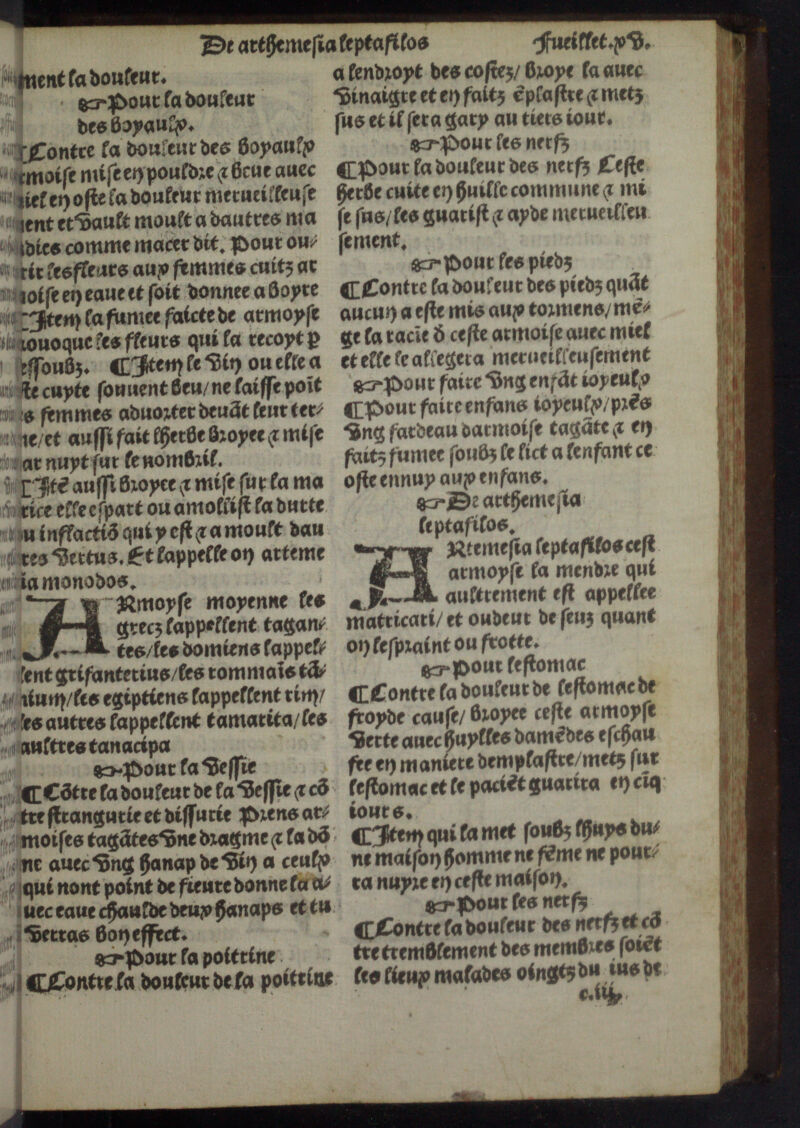 De arthemesia leptafilos Fueillet.xv.
ment la douleur.
☞Pour la douleur
des boyaulx.
❡Contre la douleur des boyaulx
moise mise en pouldre ⁊ beue auec
miel en oste la douleur merueilleuse
ment et vault moult a dautres ma
ladies comme macer dit. Pour ou⸗
rir les fleurs aux femmes cuitz ar
moise en eaue et soit donnee a boyre
❡Item la fumee faicte de armoyse
prouoque les fleurs qui la recoyt p
dessoubz. ❡Item le vin ou elle a
este cuyte souuent beu/ne laisse poit
les femmes aduorter deuāt leur ter⸗
me/et aussi fait lherbe broyee ⁊ mise
par nuyt sur le nombril.
❡Itē aussi broyee ⁊ mise sur la ma
trice elle espart ou amollist la durte
ou inflactiō qui y est ⁊ a moult dau
tres vertus. Et lappelle on arteme
sia monodos.
ARmoyse moyenne les
grecz lappellent tagan⸗
tes/les domiens lappel⸗
lent grifanterius/les rommais tā⸗
nium/les egiptiens lappellent tim/
les autres lappellent tamarita/les
aultres tanacipa
☞Pour la vessie
❡Cōtre la douleur de la vessie ⁊ cō
tre strangurie et dissurie Prens ar⸗
moises tagātes vne dragme ⁊ la dō
ne auec vng hanap de vin a ceulx
qui nont point de fieure donne la a⸗
uec eaue chaulde deux hanaps et tu
verras bon effect.
☞Pour la poitrine
❡Contre la douleur de la poitrine
a lendroyt des costez/broye la auec
vinaigre et en faitz ēplastre ⁊ metz
sus et il sera gary au tiers iour.
☞Pour les nerfz
❡Pour la douleur des nerfz Ceste
herbe cuite en huille commune ⁊ mi
se sus/les guarist ⁊ ayde merueilleu
sement.
☞Pour les piedz
❡Contre la douleur des piedz quāt
aucun a este mis aux tormens/mē⸗
ge la racie d̄ ceste armoise auec miel
et elle le allegera merueilleusement
☞Pour faire vng enfāt ioyeulx
❡Pour faire enfans ioyeulx/prēs
vng fardeau darmoise tagāte ⁊ en
faitz fumee soubz le lict a lenfant ce
oste ennuy aux enfans.
☞De arthemesia
leptafilos.
ARtemesia leptafilos cest
armoyse la mendre qui
aultrement est appellee
matricari/et oudeur de seuz quant
on lespraint ou frotte.
☞Pour lestomac
❡Contre la douleur de lestomac de
froyde cause/broyee ceste armoyse
verte auec huylles damēdes eschau
fee en maniere demplastre/metz sur
lestomac et le paciēt guarira en cīq
iours.
❡Item qui la met soubz lhuys du⸗
ne maison homme ne fēme ne pour⸗
ra nuyre en ceste maison.
☞Pour les nerfz
❡Contre la douleur des nerfz et cō
tre tremblement des membres soiēt
les lieux malades oingtz du ius de
c.iij.